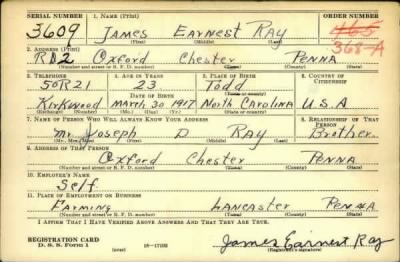 SERIAL NUMBER 1. NAME (Print) ORDER NUMBER
3609 JAMES EARNEST RAY 465
(First) (Middle) (Last) 368-A
2. ADDRESS (Print)
RD2 Oxford Chester PENNA
(Number and street or R. F. D. number) (Town) (County) (State)
3. TELEPHONE 4. AGE IN YEARS 5. PLACE OF BIRTH 6. COUNTRY OF CITIZENSHIP
50R21 23 Todd
DATE OF BIRTH (Town or county)
Kirkwood March 30 1917 North Carolina U.S.A
(Exchange) (Number) (Mo.) (Day) (Yr.) (State or country)
7. NAME OF PERSON WHO WILL ALWAYS KNOW YOUR ADDRESS 8. RELATIONSHIP OF THAT PERSON
Mr Joseph D RAY Brother
(Mr., Mrs., Miss) (First) (Middle) (Last)
9. ADDRESS OF THAT PERSON
Oxford Chester PENNA
(Number and street or R. F. D. number) (Town) (County) (State)
10. EMPLOYER'S NAME
Self
11. PLACE OF EMPLOYMENT OR BUSINESS
Farming Lancaster PENNA
(Number and street or R. F. D. number) (Town) (County) (State)
I AFFIRM THAT I HAVE VERIFIED ABOVE ANSWERS AND THAT THEY ARE TRUE.
REGISTRATION CARD
D. S. S. Form 1 (over) 16-17105 James Earnest Ray
(Registrant's signature)